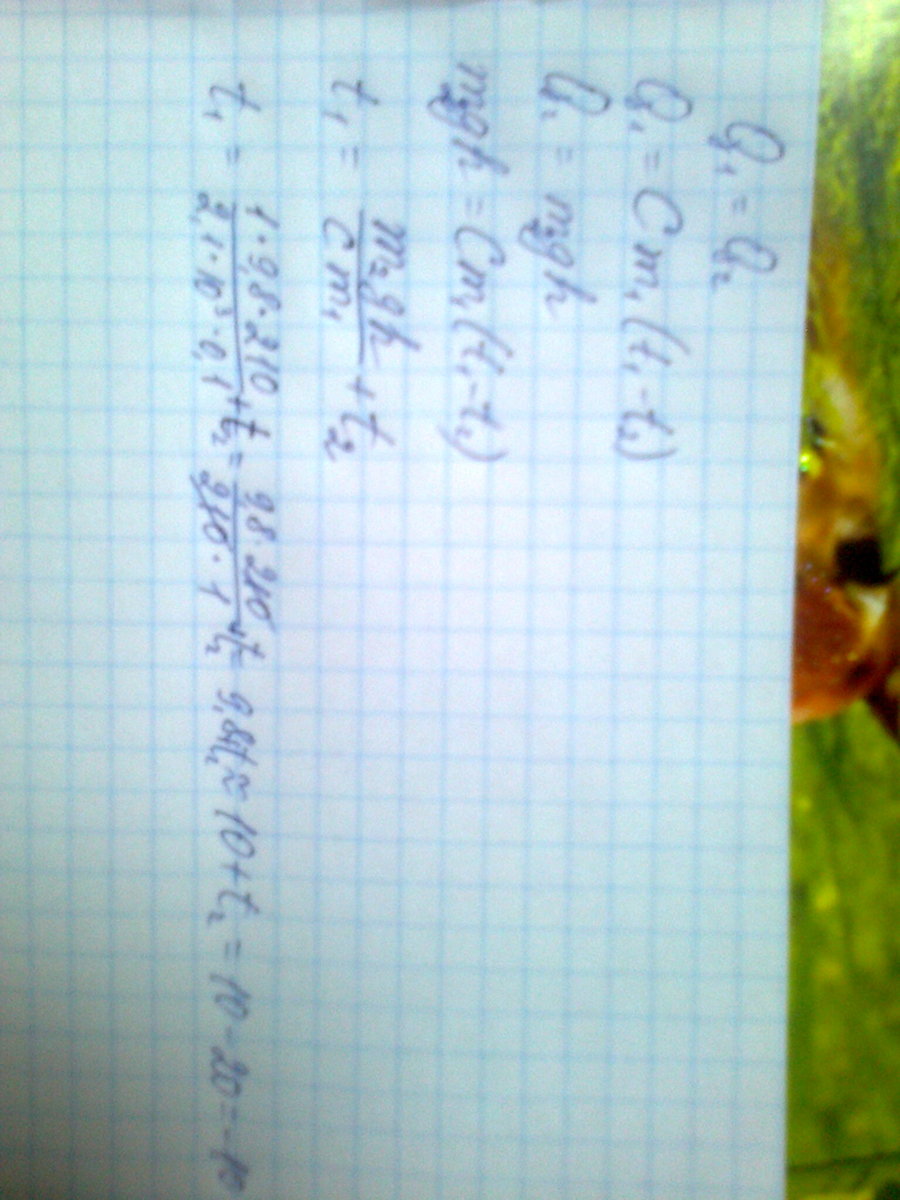 Q₁ = Q₂
Q₁ = C m₁ (t₁ - t₂)
Q₁ = m₂gh
m₂gh = Cm₁(t₁-t₂)
t₁ = m₂gh / Cm₁ + t₂
t₁ = 1·9,8·210 / 2,1·10³·0,1 + t₂ = 9,8·210 / 210·1 + t₂ = 9,8+t₂ ≈ 10+t₂ = 10-20 = -10